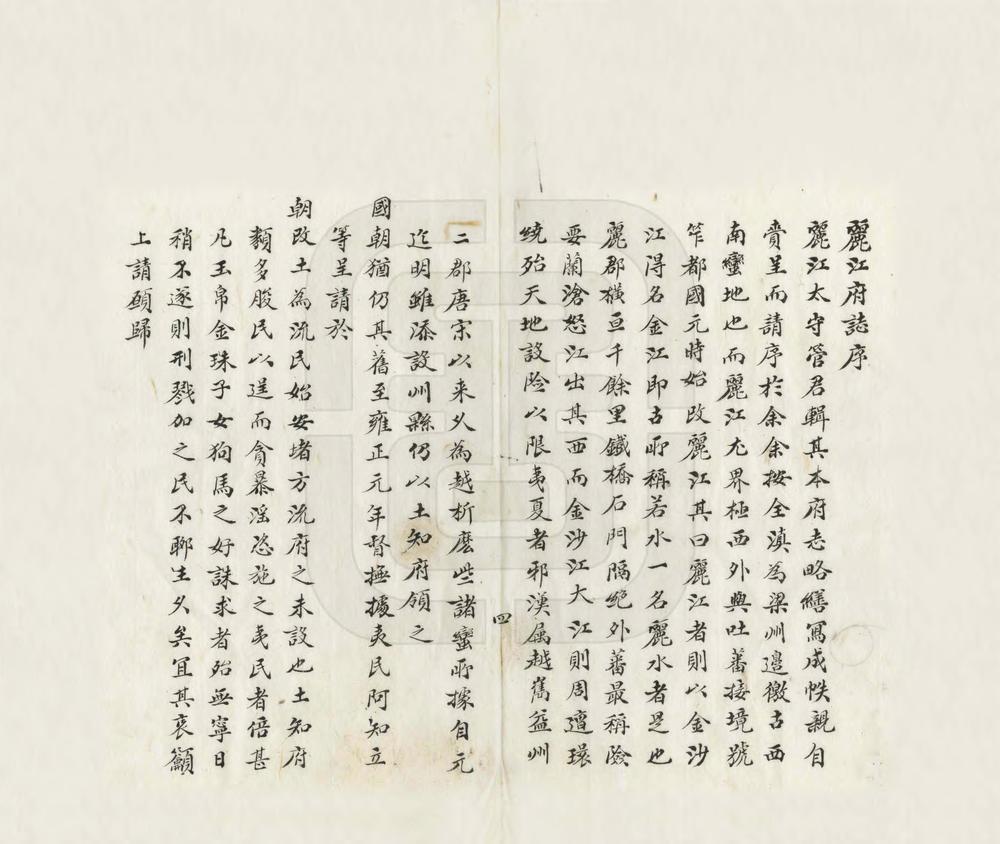 麗江府誌序
麗江太守管君輯其本府志略繕寫成帙親自
賫呈而請序於余余按全滇為梁州邉徼古西
南蠻地也而麗江尤界極西外與吐蕃接境號
笮都國元時始改麗江其曰麗江者則以金沙
江得名金江即古所稱若水一名麗水者是也
麗郡橫亘千餘里鐵橋石門隔絶外蕃最稱險
要蘭滄怒江出其西而金沙江大江則周遭環
繞殆天地設險以限夷夏者邪漢属越嶲益州
四
二郡唐宋以来乆為越析麽些諸蠻所據自元
迄明雖添設州縣仍以土知府領之
國朝猶仍其舊至雍正元年督撫據夷民阿知立
等呈請於
朝改土為流民始安堵方流府之未設也土知府
類多朘民以逞而貪暴滛恣施之夷民者倍甚
凡玉帛金珠子女狗馬之好誅求者殆無寧日
稍不遂則刑戮加之民不聊生乆矣宜其哀籲
上請願歸